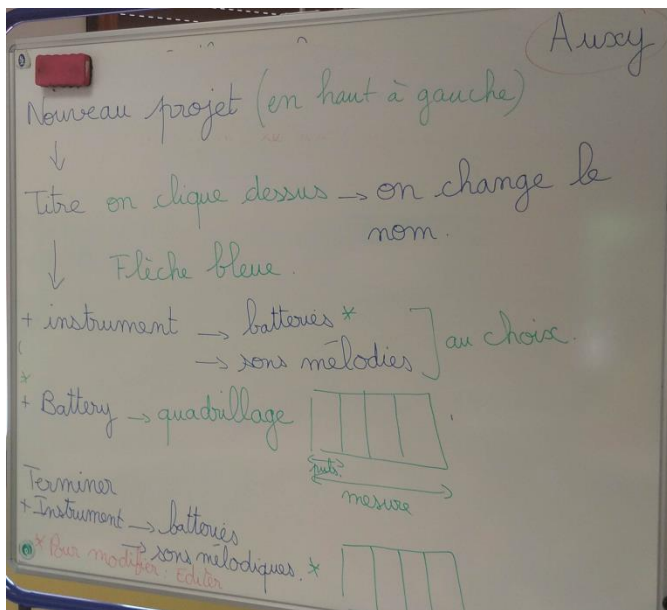 Auxy
Nouveau projet (en haut à gauche)
↓
Titre on clique dessus → on change le
nom.
↓ Flèche bleue.
+ instrument → batteries *
→ sons mélodies ] au choix.
*
+ Battery → quadrillage
mesure
Terminer
+ Instrument → batteries
→ sons mélodiques. *
* Pour modifier : Editer